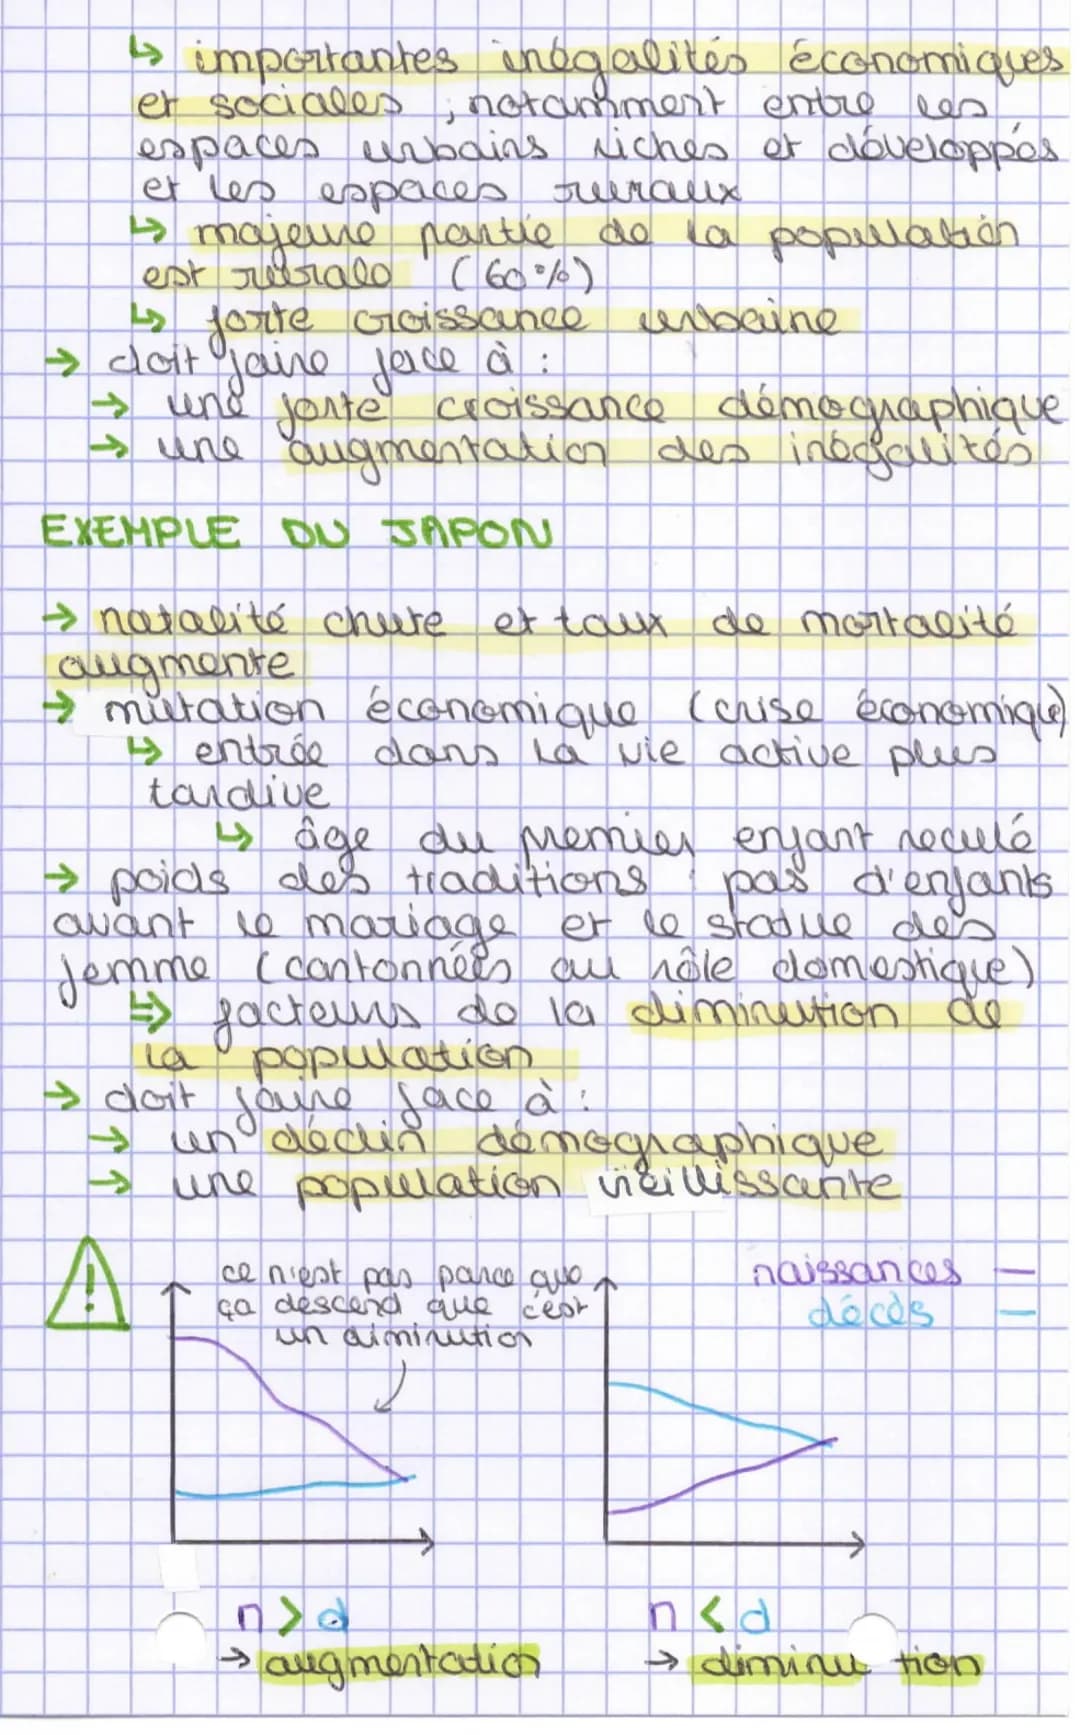 ↳ importantes inégalités économiques
et sociales, notamment entre les
espaces urbains riches et développés
et les espaces ruraux
↳ majeure partie de la population
est rurale (60%)
↳ forte croissance urbaine
→ doit faire face à :
→ une forte croissance démographique
→ une augmentation des inégalités
EXEMPLE DU JAPON
→ natalité chute et taux de mortalité
augmente
→ mutation économique (crise économique)
↳ entrée dans la vie active plus
tardive
↳ âge du premier enfant reculé
→ poids des traditions : pas d'enfants
avant le mariage et le statue des
femme (cantonnées au rôle domestique)
↳ facteurs de la diminution de
la population
→ doit faire face à :
→ un déclin démographique
→ une population vieillissante
ce n'est pas parce que
ça descend que c'est
un diminution
naissances —
décès —
n > d
→ augmentation
n < d
→ diminution